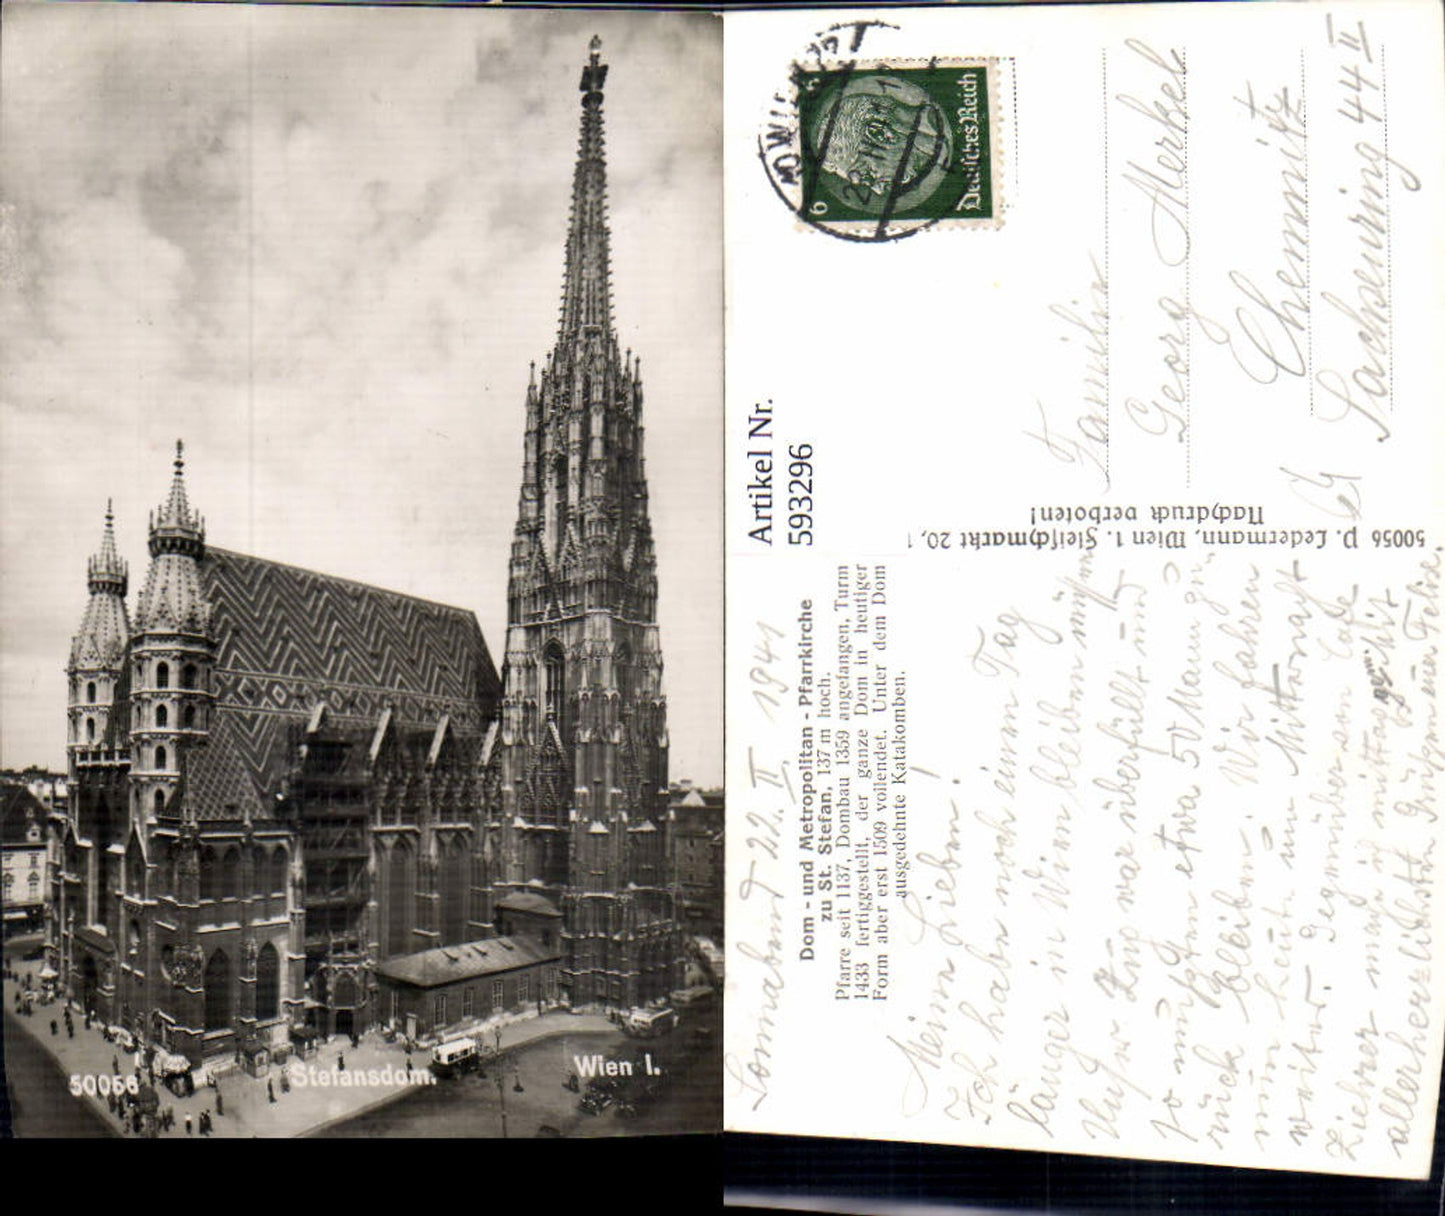 50056
Stefansdom.
Wien I.
6
Deutsches Reich
Artikel Nr.
593296
Familie
Georg Merkel
Chemnitz
Sachsenring 44 II
50056 P. Ledermann, Wien 1. Fleischmarkt 20,
Nachdruck verboten!
Dom- und Metropolitan-Pfarrkirche
zu St. Stefan, 137 m hoch.
Pfarre seit 1137, Dombau 1359 angefangen, Turm
1433 fertiggestellt, der ganze Dom in heutiger
Form aber erst 1509 vollendet. Unter dem Dom
ausgedehnte Katakomben.
Sonnabend 22. II 1941
Meine Lieben!
Ich habe noch einen Tag
länger in Wien bleiben müssen
Unser Zug war überfüllt und
so mußten etwa 50 Mann zu-
rück bleiben. Wir fahren
nun heute um Mitternacht
weiter. Gegenüber
allerherzlichsten Grüßen euer